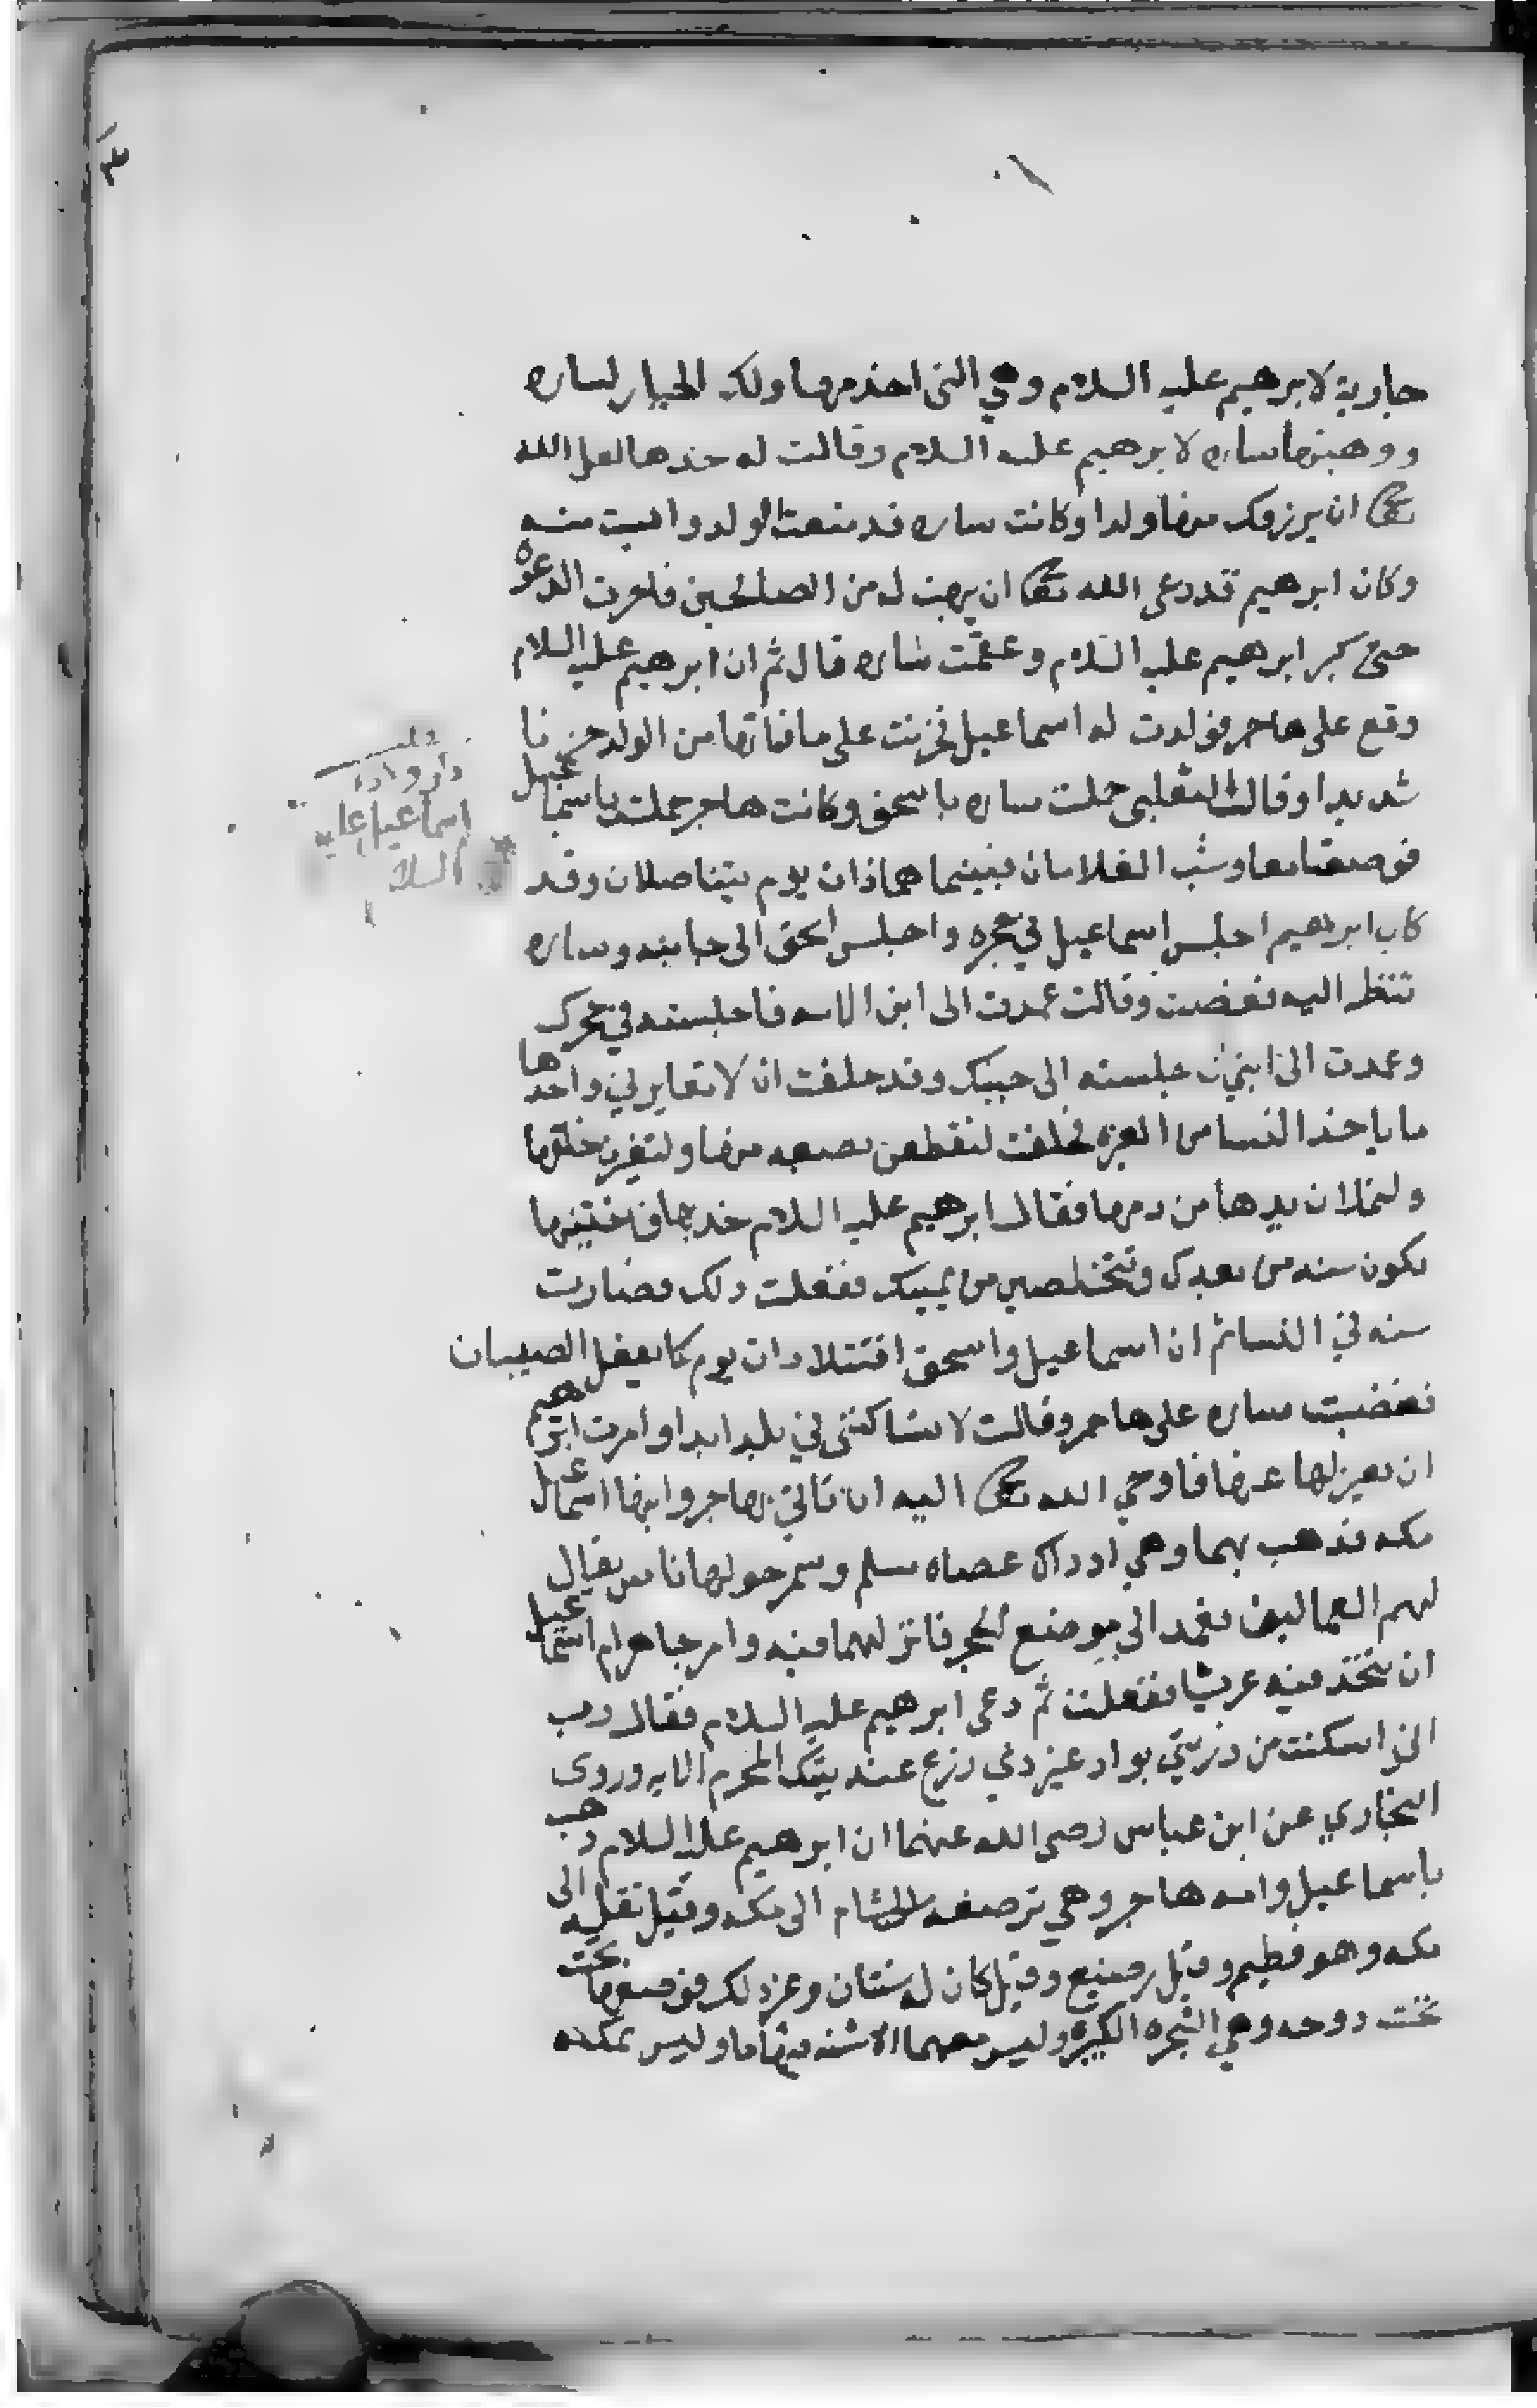 جارية لابرهيم عليه السلام وهي التي اخذ منها ذلك الجبار لساره
ووهبتها ساره لابرهيم عليه السلام وقالت له خذها لعل الله
تعالى ان يرزقك منها ولدا وكانت ساره قد منعت الولد وايست منه
وكان ابرهيم قد دعى الله تعالى ان يهب له من الصالحين فاخرت الدعوة
حتى كبر ابرهيم عليه السلام وعقمت ساره قال ثم ان ابرهيم عليه السلام
وقع على هاجر فولدت له اسماعيل فحزنت على ما فاتها من الولد حزنا
شديدا وقال الثعلبي حملت ساره باسحق وكانت هاجر حملت باسماعيل
فوضعتا معا وشب الغلامان فبينما هما ذات يوم يتناضلان وقد
كان ابرهيم اجلس اسماعيل في حجره واجلس اسحق الى جانبه وساره
تنظر اليه فغضبت وقالت عمدت الى ابن الامه فاجلسته في حجرك
وعمدت الى ابني فاجلسته الى جنبك وقد حلفت ان لا تغايرني واخذها
ما ياخذ النسا من الغيره فحلفت لتقطعن بضعه منها ولتغيرن خلقها
ولتملان يدها من دمها فقال ابرهيم عليه السلام خديها فاختنيها
تكون سنه من بعدك وتتخلصين من يمينك ففعلت ذلك فصارت
سنه في النسا ثم ان اسماعيل واسحق اقتتلا ذات يوم كما يفعل الصبيان
فغضبت ساره على هاجر وقالت لا تساكنني في بلد ابدا وامرت ابرهيم
ان يعزلها عنها فاوحى الله تعالى اليه ان ياتي بهاجر وابنها اسماعيل
مكه فذهب بهما وهي اذ ذاك عضاه سلم وسمر حولها ناس يقال
لهم العماليق فعمد الى موضع الحجر فانزلهما فيه وامر هاجر ام اسماعيل
ان تتخذ فيه عريشا ففعلت ثم دعى ابرهيم عليه السلام فقال رب
اني اسكنت من ذريتي بواد غير ذي زرع عند بيتك المحرم الايه وروى
البخاري عن ابن عباس رضى الله عنهما ان ابرهيم عليه السلام ذهب
باسماعيل وامه هاجر وهي ترضعه من الشام الى مكه وقيل نقله الى
مكه وهو فطيم وقيل رضيع وقيل كان له سنتان وغير ذلك فوضعهما تحت
تحت دوحه وهي الشجره الكبيره وليس معهما الا شنه فيها ما وليس بمكه
اسماعيل عليه
السلام